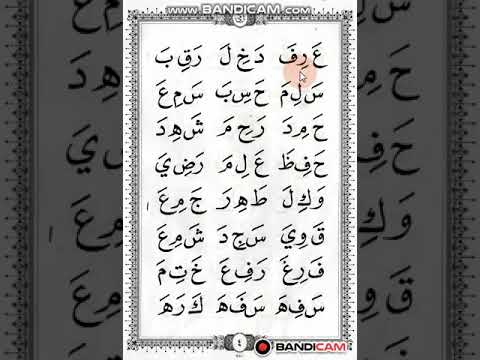 WWW.BANDICAM.COM
عَ رِفَ دَ خِ لَ رَ قِ بَ
سَ لِ مَ حَ سِ بَ سَ مِ عَ
حَ مِ دَ رَ حِ مَ شَ هِ دَ
حَ فِ ظَ عَ لِ مَ رَ ضِ يَ
وَ كِ لَ طَ هِ رَ جَ مِ عَ
قَ وِ يَ سَ جِ دَ شَ مِ عَ
فَ رِ غَ رَ فِ عَ خَ تِ مَ
سَ فِ هَ سَ فَ هَ كَ رَ هَ
٤
BANDICAM